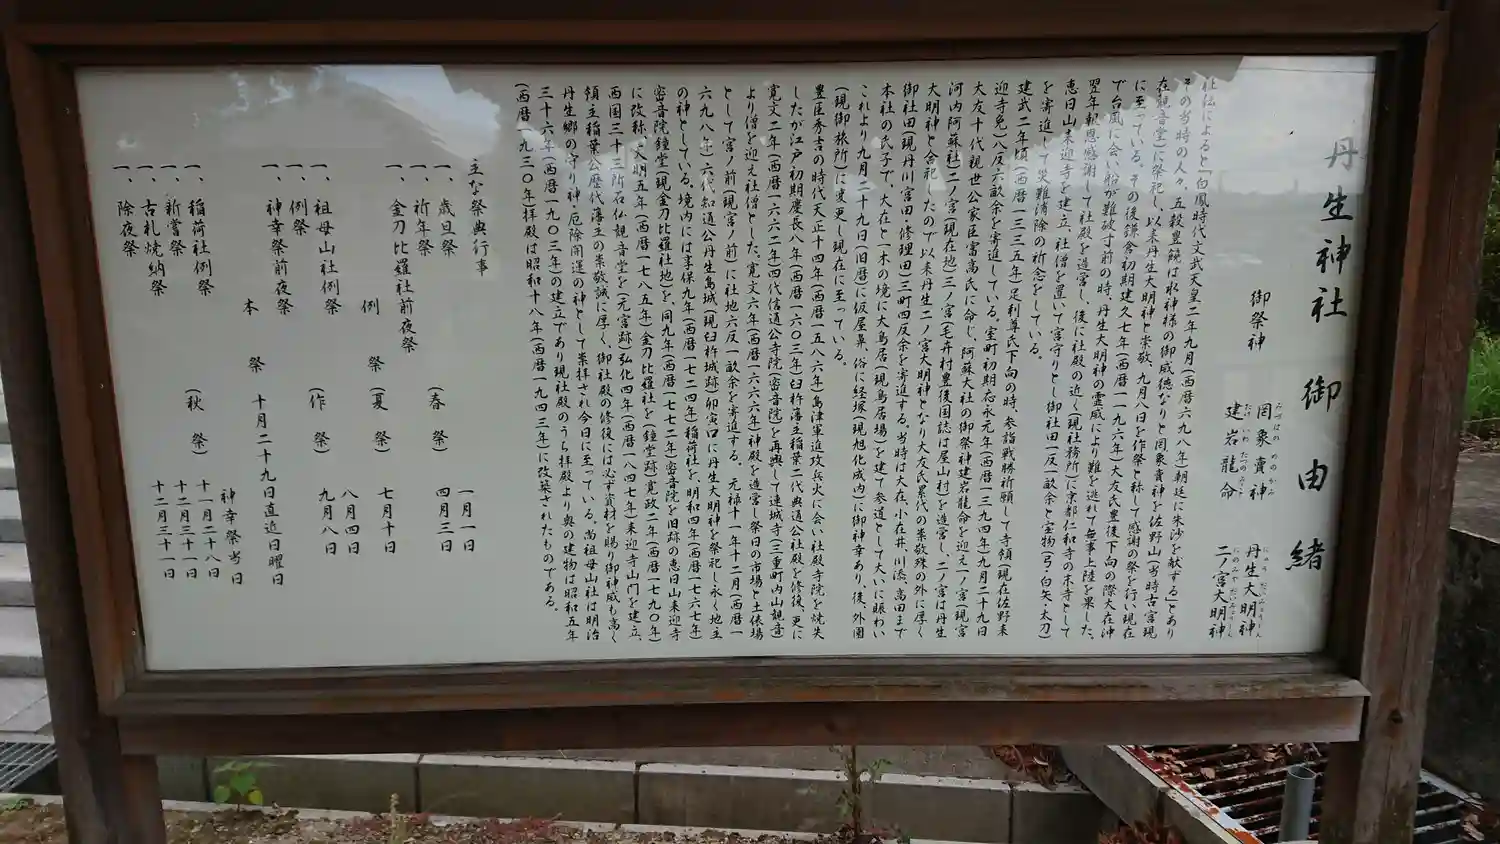 丹生神社御由緒
御祭神
罔象賣神 丹生大明神
建岩龍命 二ノ宮大明神
社伝によると「白鳳時代文武天皇二年九月(西暦六九八年)朝廷に朱沙を献する」とあり
その当時の人々、五穀豊饒は水神様の御威徳なりと罔象賣神を佐野山(当時古宮現
在観音堂)に祭祀し、以来丹生大明神と崇敬、九月八日を作祭と称して感謝の祭を行い現在
に至っている。その後鎌倉初期建久七年(西暦一一九六年)大友氏豊後下向の際大在沖
で台風に会い船が難破寸前の時、丹生大明神の霊威により難を逃れて無事上陸を果した、
翌年報恩感謝して社殿を造営し、後に社殿の近く(現社務所)に京都仁和寺の末寺として
恵日山来迎寺を建立、社僧を置いて宮守りとし御社田一反一畝余と宝物(弓・白矢・太刀)
を寄進して災難消除の祈念をしている。
建武二年頃(西暦一三三五年)足利尊氏下向の時、参詣戦勝祈願して寺領(現在佐野来
迎寺免)八反六畝余を寄進している。室町初期応永元年(西暦一三九四年)九月二十九日
大友十代親世公家臣富高氏に命じ、阿蘇大社の御祭神建岩龍命を迎え一ノ宮(現宮
河内阿蘇社)二ノ宮(現在地)三ノ宮(毛井村豊後国誌は屋山村)を造営し、二ノ宮は丹生
大明神と合祀したので以来丹生二ノ宮大明神となり大友氏累代の崇敬殊の外に厚く
御社田(現丹川宮田修理田)三町四反余を寄進する。当時は大在、小在井、川添、高田まで
本社の氏子で、大在と一木の境に大鳥居(現鳥居場)を建て参道として大いに賑わい
これより九月二十九日(旧暦)に仮屋鼻、俗に経塚(現旭化成内)に御神幸あり、後、外園
(現御旅所)に変更し現在に至っている。
豊臣秀吉の時代天正十四年(西暦一五八六年)島津軍進攻兵火に会い社殿寺院を焼失
したが江戸初期慶長八年(西暦一六〇三年)臼杵藩主稲葉二代典通公社殿を修復、更に
寛文二年(西暦一六六二年)四代信通公寺院(密音院)を再興して連城寺(三重町内山観音)
より僧を迎え社僧とした。寛文六年(西暦一六六六年)神殿を造営し祭日の市場と土俵場
として宮ノ前(現宮ノ前)に社地六反一畝余を寄進する。元禄十一年十二月(西暦一
六九八年)六代知通公丹生島城(現臼杵城跡)卯寅口に丹生大明神を祭祀し永く地主
の神としている。境内には享保九年(西暦一七二四年)稲荷社を、明和四年(西暦一七六七年)
密音院鐘堂(現金刀比羅社地)を、同九年(西暦一七七二年)密音院を旧跡の恵日山来迎寺
に改称、天明五年(西暦一七八五年)金刀比羅社を(鐘堂跡)寛政二年(西暦一七九〇年)
西国三十三所石仏観音堂を(元宮跡)弘化四年(西暦一八四七年)来迎寺山門を建立、
領主稲葉公歴代藩主の崇敬誠に厚く、御社殿の修復には必ず資材を賜り御神威も高く
丹生郷の守り神、厄除開運の神として崇拝され今日に至っている。尚祖母山社は明治
三十六年(西暦一九〇三年)の建立であり現社殿のうち拝殿より奥の建物は昭和五年
(西暦一九三〇年)拝殿は昭和十八年(西暦一九四三年)に改築されたものである。
主な祭典行事
一、歳旦祭 一月一日
一、祈年祭 (春祭) 四月三日
一、金刀比羅社前夜祭
例祭 (夏祭) 七月十日
一、祖母山社例祭 八月四日
一、例祭 (作祭) 九月八日
一、神幸祭前夜祭 十月二十九日直近日曜日
本祭 神幸祭当日
一、稲荷社例祭
一、新嘗祭 (秋祭) 十一月二十八日
一、古札焼納祭 十二月三十一日
一、除夜祭 十二月三十一日